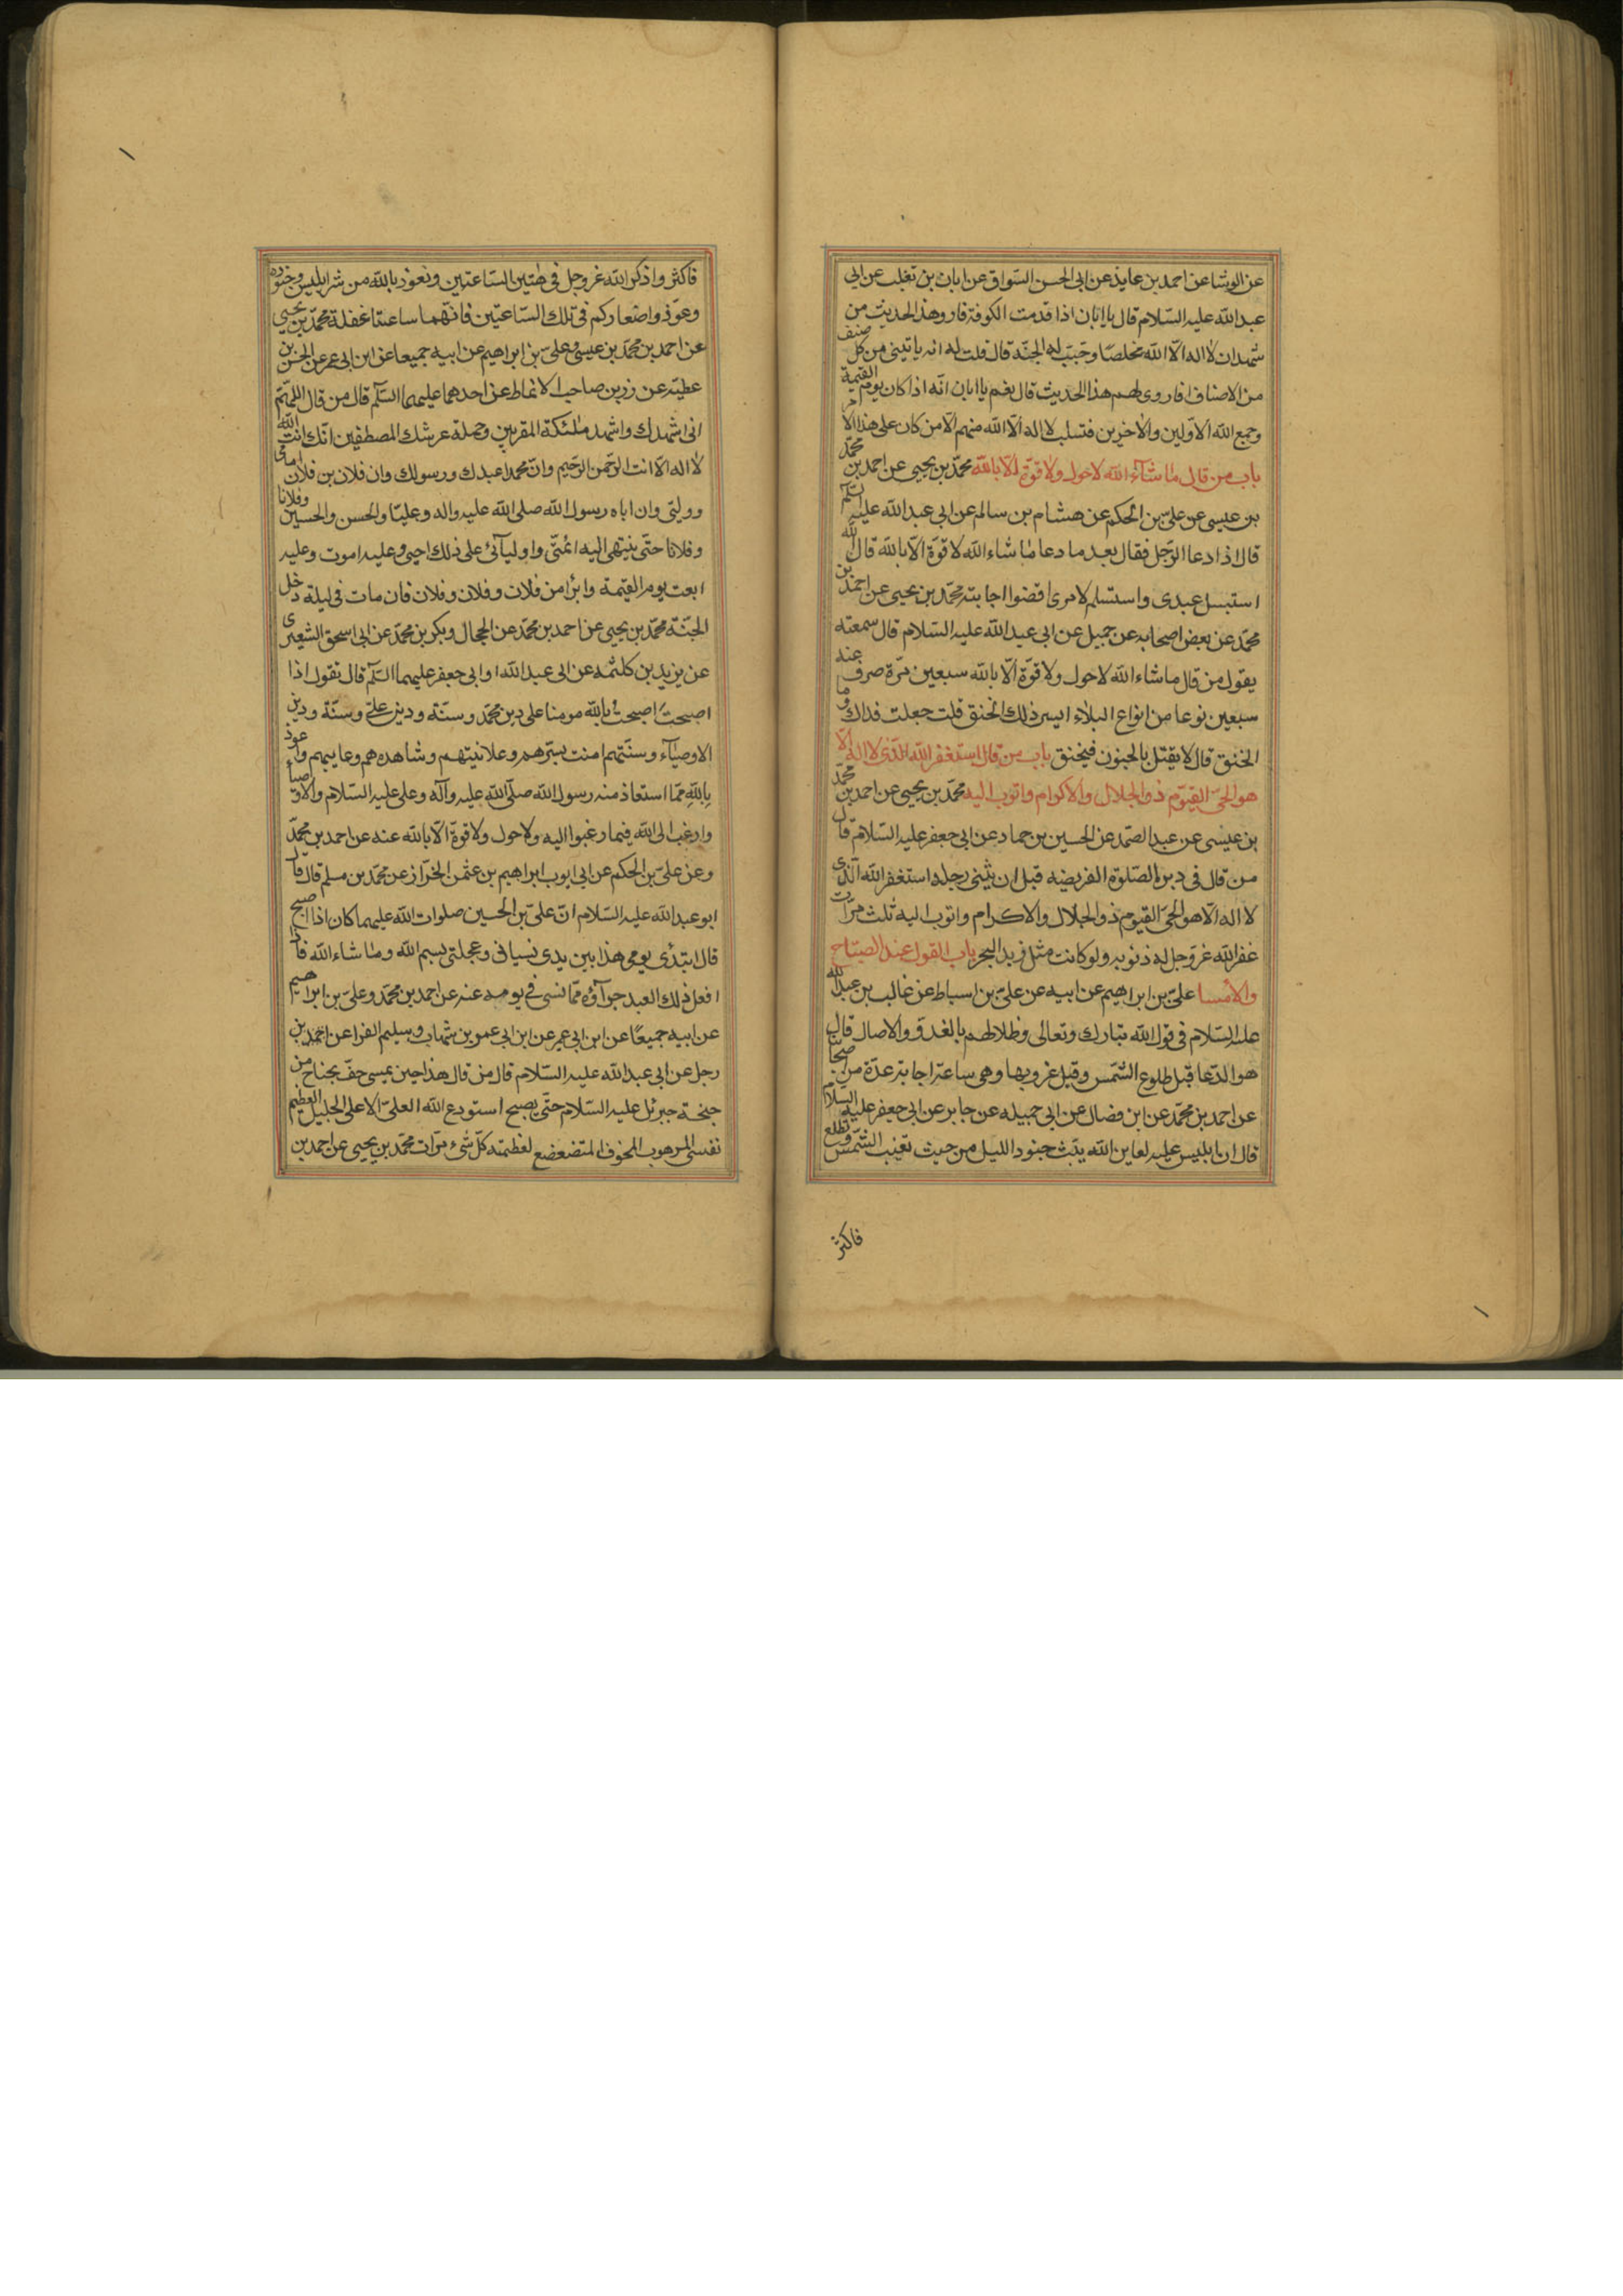 عن الوشا عن احمد بن عايذ عن ابى الحسن السواق عن ابان بن تغلب عن ابى
عبد الله عليه السلام قال يا ابان اذا قدمت الكوفة فارو هذا الحديث من
شهد ان لا اله الا الله مخلصا وجبت له الجنة قال قلت له انه ياتينى من كل صنف
من الاصناف افاروى لهم هذا الحديث قال نعم يا ابان انه اذا كان يوم القيمة
وجمع الله الاولين والاخرين فتسلب لا اله الا الله منهم الا من كان على هذا الامر
باب من قال ما شاء الله لا حول ولا قوة الا بالله محمد بن يحيى عن احمد بن محمد
بن عيسى عن على بن الحكم عن هشام بن سالم عن ابى عبد الله عليه السلم
قال اذا دعا الرجل فقال بعد ما دعا ما شاء الله لا قوة الا بالله قال الله
استبسل عبدى واستسلم لامرى اقضوا اجابته محمد بن يحيى عن احمد بن
محمد عن بعض اصحابه عن جميل عن ابى عبد الله عليه السلام قال سمعته
يقول من قال ما شاء الله لا حول ولا قوة الا بالله سبعين مرة صرف عنه
سبعين نوعا من انواع البلاء ايسر ذلك الخنق قلت جعلت فداك وما
الخنق قال لا يقتل بالجنون فيخنق باب من قال استغفر الله الذى لا اله الا
هو الحى القيوم ذو الجلال والاكرام واتوب اليه محمد بن يحيى عن احمد بن محمد
بن عيسى عن عبد الصمد عن الحسين بن حماد عن ابى جعفر عليه السلام قال
من قال فى دبر الصلوة الفريضه قبل ان يثنى رجله استغفر الله الذى
لا اله الا هو الحى القيوم ذو الجلال والاكرام واتوب اليه ثلث مرات
غفر الله عز وجل له ذنوبه ولو كانت مثل زبد البحر باب القول عند الصباح
والامسا على بن ابراهيم عن ابيه عن على بن اسباط عن غالب بن عبد الله
عليه السلام فى قول الله تبارك وتعالى وظلالهم بالغدو والاصال قال
هو الدعا قبل طلوع الشمس وقبل غروبها وهى ساعة اجابة عدة من اصحابنا
عن احمد بن محمد عن ابن فضال عن ابى جميله عن جابر عن ابى جعفر عليه السلام
قال ان ابليس عليه لعاين الله يبث جنود الليل من حيث تغيب الشمس وتطلع
فاكثر
فاكثروا ذكر الله عز وجل فى هتين الساعتين وتعوذ بالله من شر ابليس وجنوده
وعوذوا صغاركم فى تلك الساعتين فانهما ساعتا غفلة محمد بن يحيى
عن احمد بن محمد بن عيسى وعلى بن ابراهيم عن ابيه جميعا عن ابن ابى عمير عن الحسن بن
عطيه عن رزين صاحب الانماط عن احدهما عليهما السلم قال من قال اللهم
انى اشهدك واشهد ملئكة المقربين وحملة عرشك المصطفين انك انت الله
لا اله الا انت الرحمن الرحيم وان محمدا عبدك ورسولك وان فلان بن فلان امامى
ووليى وان اباه رسول الله صلى الله عليه واله وعليا والحسن والحسين وفلانا
وفلانا حتى ينتهى اليه ائمتى واوليائى على ذلك احيى وعليه اموت وعليه
ابعث يوم القيمة وابرا من فلان وفلان وفلان فان مات فى ليلة دخل
الجنة محمد بن يحيى عن احمد بن محمد عن الحجال وبكر بن محمد عن ابى اسحق الشعيرى
عن يزيد بن كلثمه عن ابى عبد الله او ابى جعفر عليهما السلم قال تقول اذا
اصبحت اصبحت بالله مومنا على دين محمد وسنة ودين على وسنة ودين
الاوصياء وسنتهم امنت بسرهم وعلانيتهم وشاهدهم وغايبهم واعوذ
بالله مما استعاذ منه رسول الله صلى الله عليه وآله وعلى عليه السلام والاوصيا
وارغب الى الله فيما رغبوا اليه ولا حول ولا قوة الا بالله عنه عن احمد بن محمد
وعن على بن الحكم عن ابى ايوب ابراهيم بن عثمن الخزاز عن محمد بن مسلم قال قال
ابو عبد الله عليه السلام ان على بن الحسين صلوات الله عليهما كان اذا اصبح
قال ابتدى يومى هذا بين يدى نسيانى وعجلتى بسم الله وما شاء الله فاذا
افعل ذلك العبد جزآؤه مما نسى فى يومه عنه عن احمد بن محمد وعلى بن ابراهيم
عن ابيه جميعا عن ابن ابى عمير عن ابن ابى عمر بن شهاب وسليم الفرا عن احمد بن
رجل عن ابى عبد الله عليه السلام قال من قال هذا حين يمسى حف بجناح من
جنحة جبرئل عليه السلام حتى يصبح استودع الله العلى الاعلى الجليل العظيم
نفسى المرهوب المخوف المتضعضع لعظمته كل شىء مرات محمد بن يحيى عن احمد بن